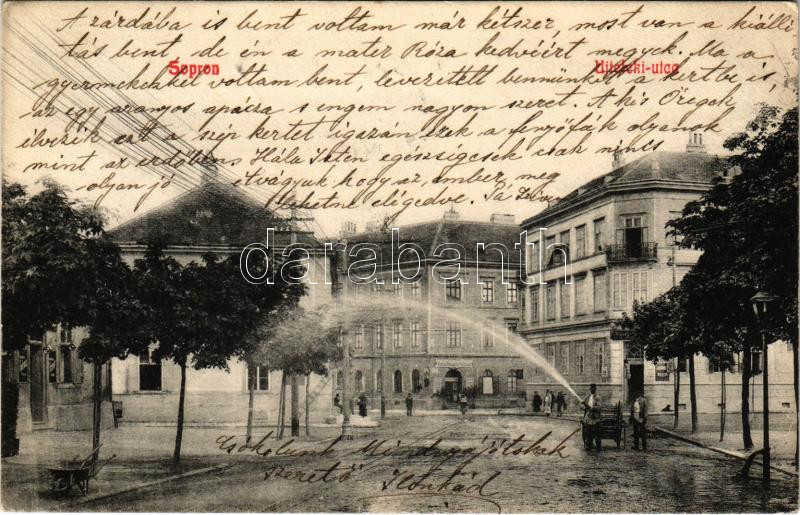 A zárdába is bent voltam már kétszer, most van a kiálli
tás bent, de én a mater Róza kedvéért megyek. Ma a
Sopron
Ujteleki-utca
gyermekekkel voltam bent, levezetett bennünket a kertbe is,
az egy aranyos apácza s engem nagyon szeret. A kis Öregek
élvezik ezt a szép kertet igazán ezek a fenyőfák olyanok
mint az erdőben. Hála Isten egészségesek csak nincs
olyan jó étvágyuk hogy az ember meg
lehetne elégedve. Pá
darabanth.com
Csókolunk Mindnyájótokat
szerető Ilonkád